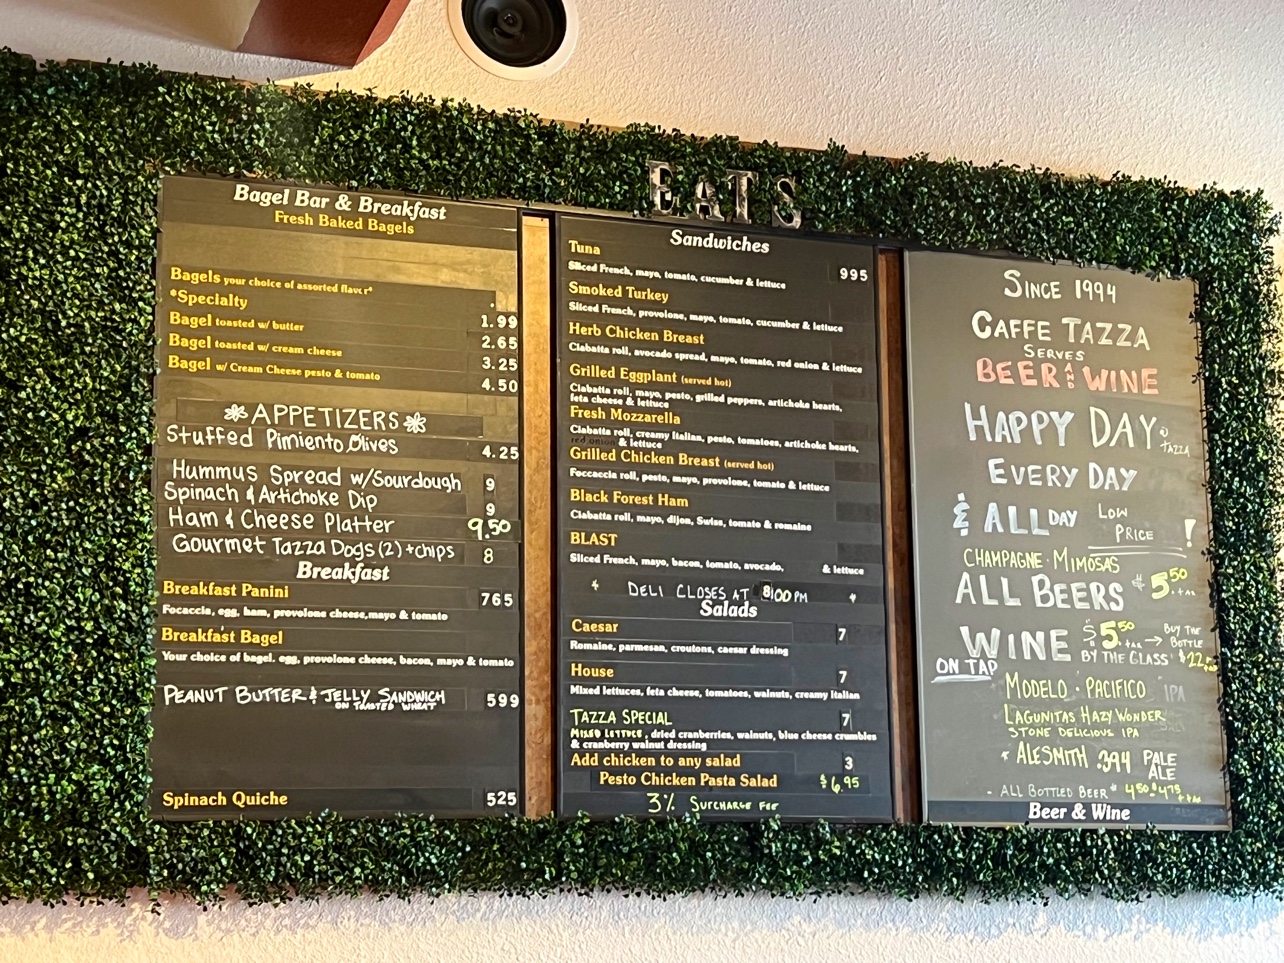 EATS
Bagel Bar & Breakfast
Fresh Baked Bagels
Bagels your choice of assorted flavor*
*Specialty
Bagel toasted w/ butter 1.99
Bagel toasted w/ cream cheese 2.65
Bagel w/ Cream Cheese pesto & tomato 3.25
4.50
APPETIZERS
Stuffed Pimiento Olives 4.25
Hummus Spread w/Sourdough 9
Spinach & Artichoke Dip 9
Ham & Cheese Platter 9.50
Gourmet Tazza Dogs (2) + chips 8
Breakfast
Breakfast Panini 765
Focaccia, egg, ham, provolone cheese, mayo & tomato
Breakfast Bagel
Your choice of bagel. egg, provolone cheese, bacon, mayo & tomato
PEANUT BUTTER & JELLY SANDWICH 599
ON TOASTED WHEAT
Spinach Quiche 525
Sandwiches
Tuna 995
Sliced French, mayo, tomato, cucumber & lettuce
Smoked Turkey
Sliced French, provolone, mayo, tomato, cucumber & lettuce
Herb Chicken Breast
Ciabatta roll, avocado spread, mayo, tomato, red onion & lettuce
Grilled Eggplant (served hot)
Ciabatta roll, mayo, pesto, grilled peppers, artichoke hearts,
feta cheese & lettuce
Fresh Mozzarella
Ciabatta roll, creamy italian, pesto, tomatoes, artichoke hearts,
red onion & lettuce
Grilled Chicken Breast (served hot)
Foccaccia roll, pesto, mayo, provolone, tomato & lettuce
Black Forest Ham
Ciabatta roll, mayo, dijon, Swiss, tomato & romaine
BLAST
Sliced French, mayo, bacon, tomato, avocado, & lettuce
* DELI CLOSES AT 8:00 PM *
Salads
Caesar 7
Romaine, parmesan, croutons, caesar dressing
House 7
Mixed lettuces, feta cheese, tomatoes, walnuts, creamy Italian
TAZZA SPECIAL 7
MIXED LETTUCE, dried cranberries, walnuts, blue cheese crumbles
& cranberry walnut dressing
Add chicken to any salad 3
Pesto Chicken Pasta Salad $6.95
3% SURCHARGE FEE
SINCE 1994
CAFFE TAZZA
SERVES
BEER AND WINE
HAPPY DAY @ TAZZA
EVERY DAY
& ALL DAY LOW PRICE!
CHAMPAGNE · MIMOSAS
ALL BEERS $5.50 + tax
WINE $5.50 + tax → BUY THE BOTTLE
BY THE GLASS $22
ON TAP
MODELO · PACIFICO IPA
LAGUNITAS HAZY WONDER
STONE DELICIOUS IPA
* ALESMITH .394 PALE ALE
- ALL BOTTLED BEER $4.50 - $4.75 + tax
Beer & Wine